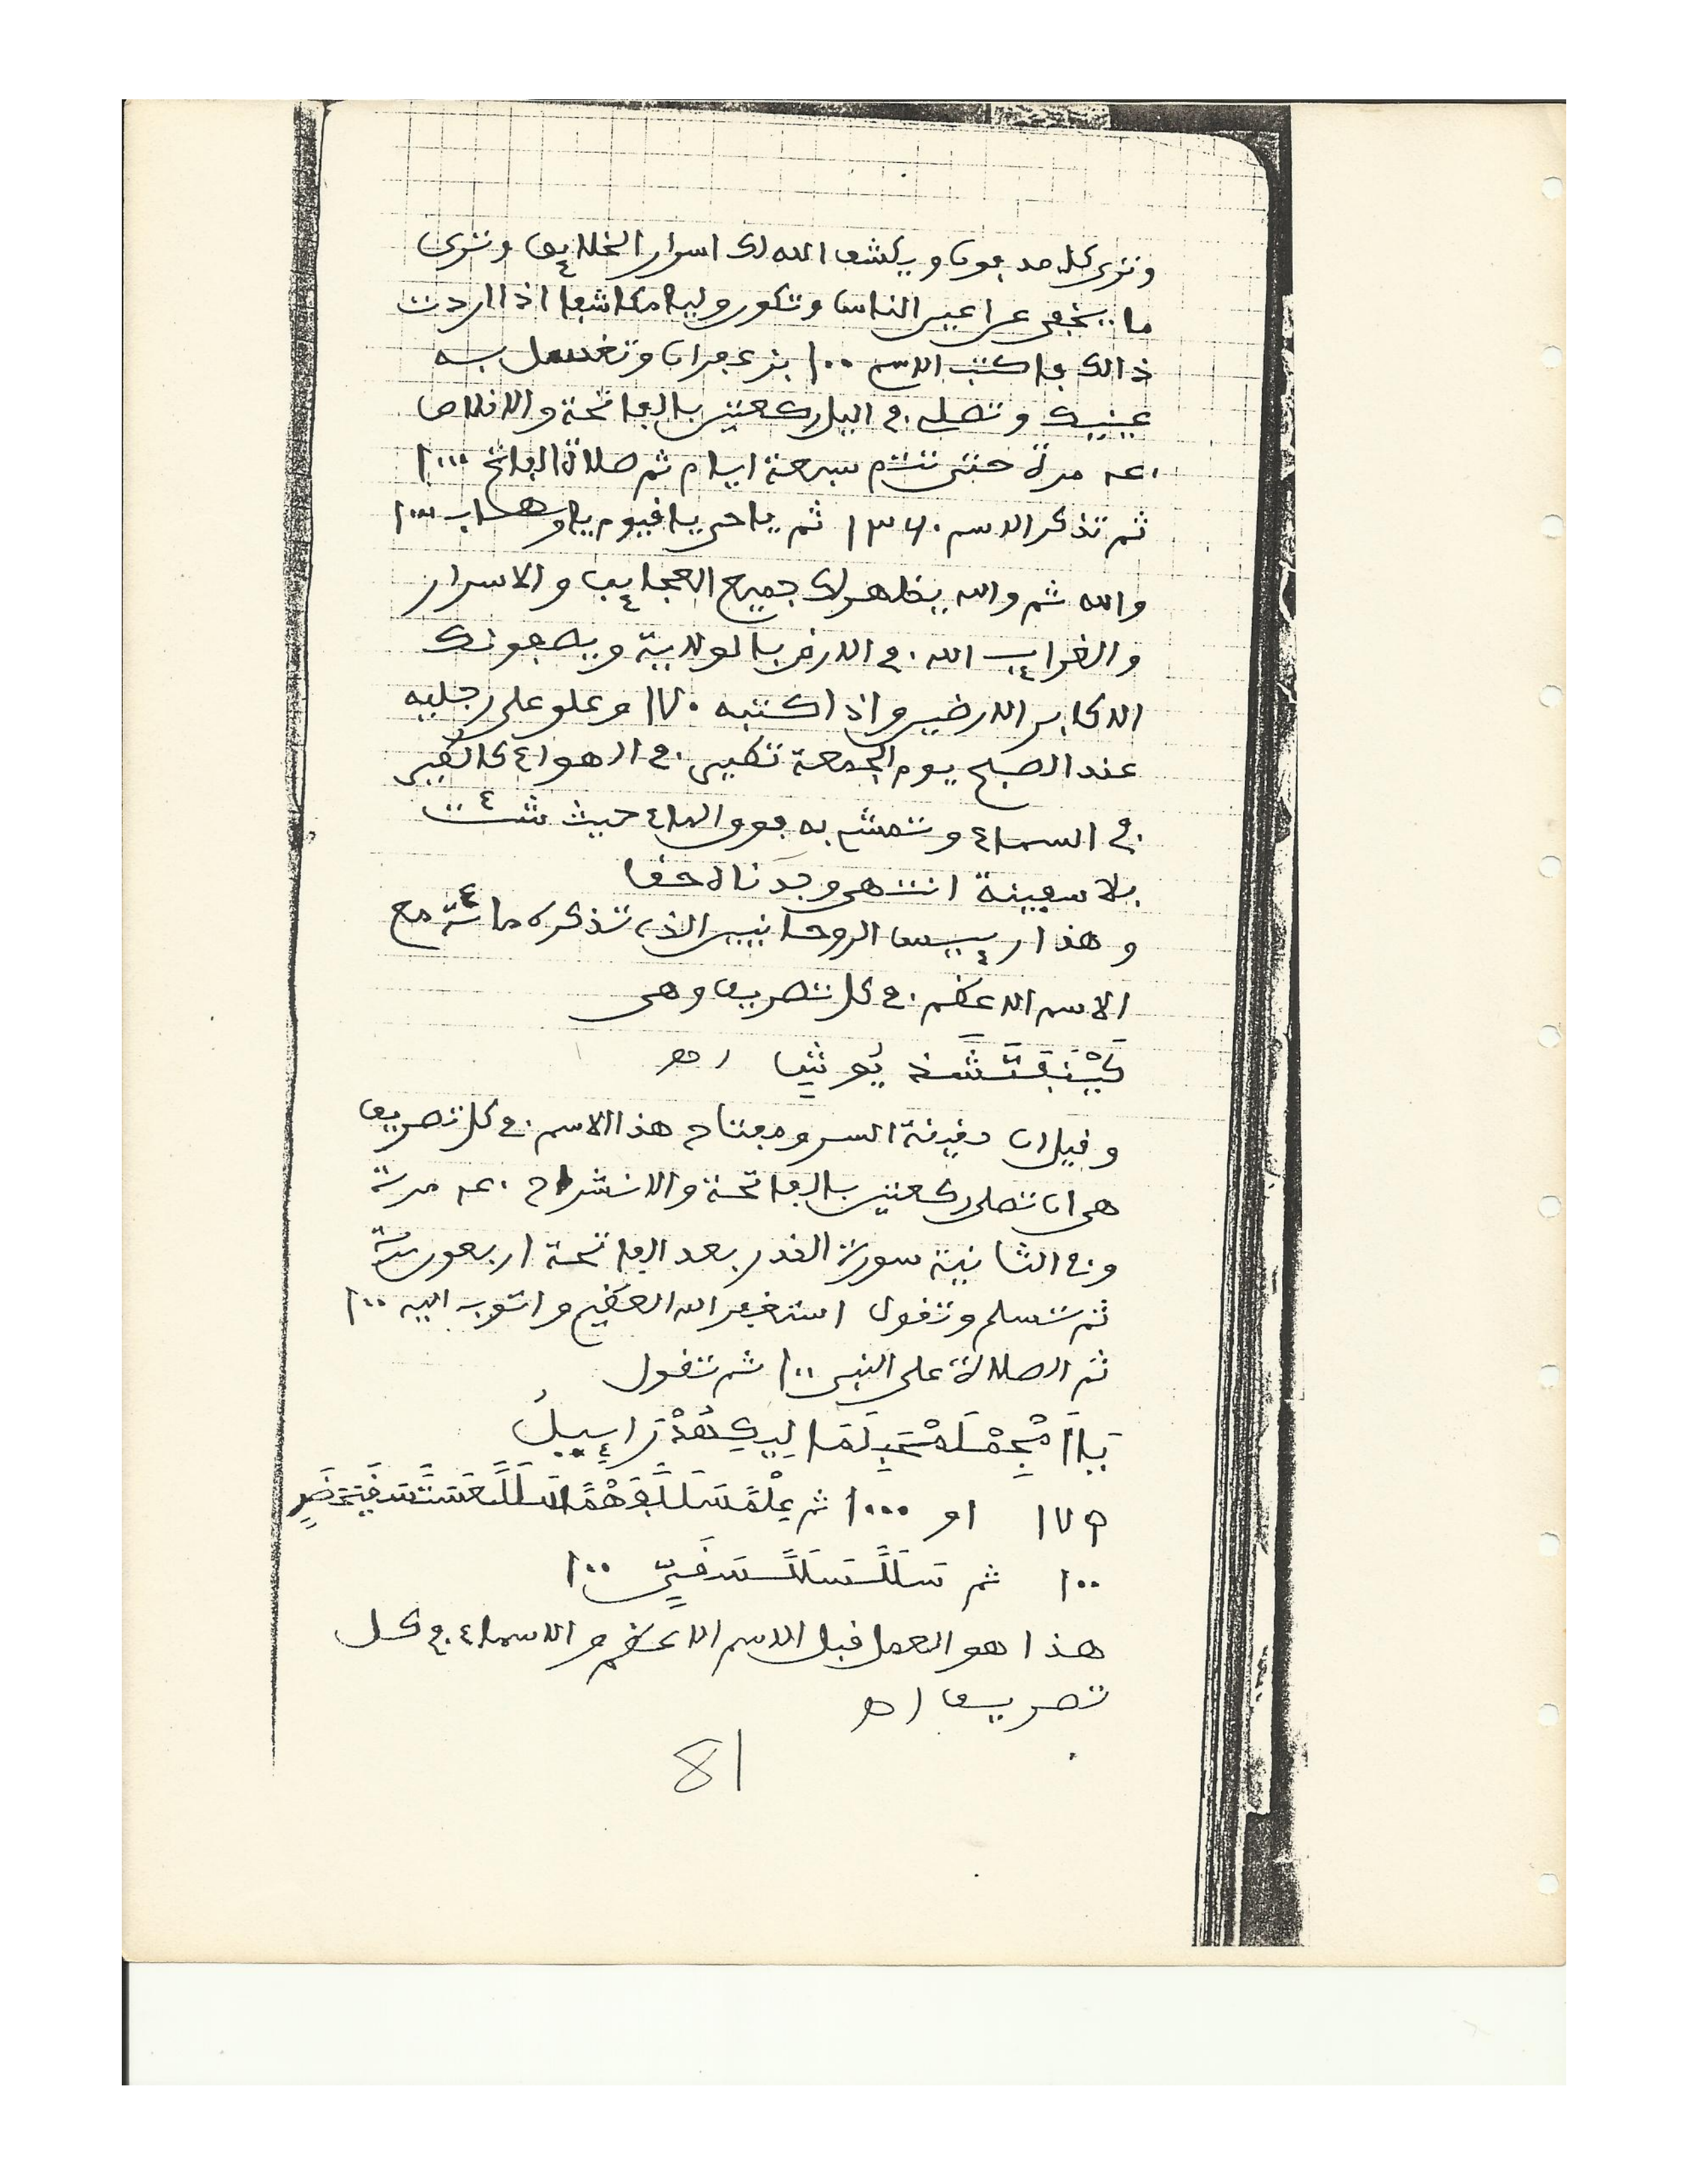 وترى كل مدفون ويكشف الله لك اسرار الخلايق وترى
ما يخفى عن اعين الناس وتكون وليا مكاشفا اذا اردت
ذالك فاكتب الاسم ١٠٠ بزعفران وتغسل به
عينيك وتصلي في اليل ركعتين بالفاتحة والاخلاص
مرة حتى تتم سبعة ايام ثم صلاة الفاتح ١٠٠٠
ثم تذكر الاسم ١٣٦٠ ثم يا حي يا قيوم يا وهاب ١٠٠٠
والله ثم والله يظهر لك جميع العجايب والاسرار
والغرايب الله في الارض بالولاية ويطيعونك
الاكابر الارضين واذا كتبه ١٧٠ وعلو على رجليه
عند الصبح يوم الجمعة تطير في الهواء كالطير
في السماء وتمشي به فوق الماء حيث شئت
بلا سفينة انتهى وجدناه حقا
وهذا رييس الروحانيين الذي تذكره مائة مع
الاسم الاعظم في كل تصريف وهي
وقيل ان دفينة السر ومفتاح هذا الاسم في كل تصريف
هي ان تصلي ركعتين بالفاتحة والانشراح مرة
وفي الثانية سورة القدر بعد الفاتحة اربعون مرة
ثم تسلم وتقول استغفر الله العظيم واتوب اليه ١٠٠
ثم الصلاة على النبي ١٠٠ ثم تقول
او ١٠٠٠ ثم
١٠٠ ثم ١٠٠
هذا هو العمل قبل الاسم الاعظم والاسماء في كل
تصريف اهـ
81